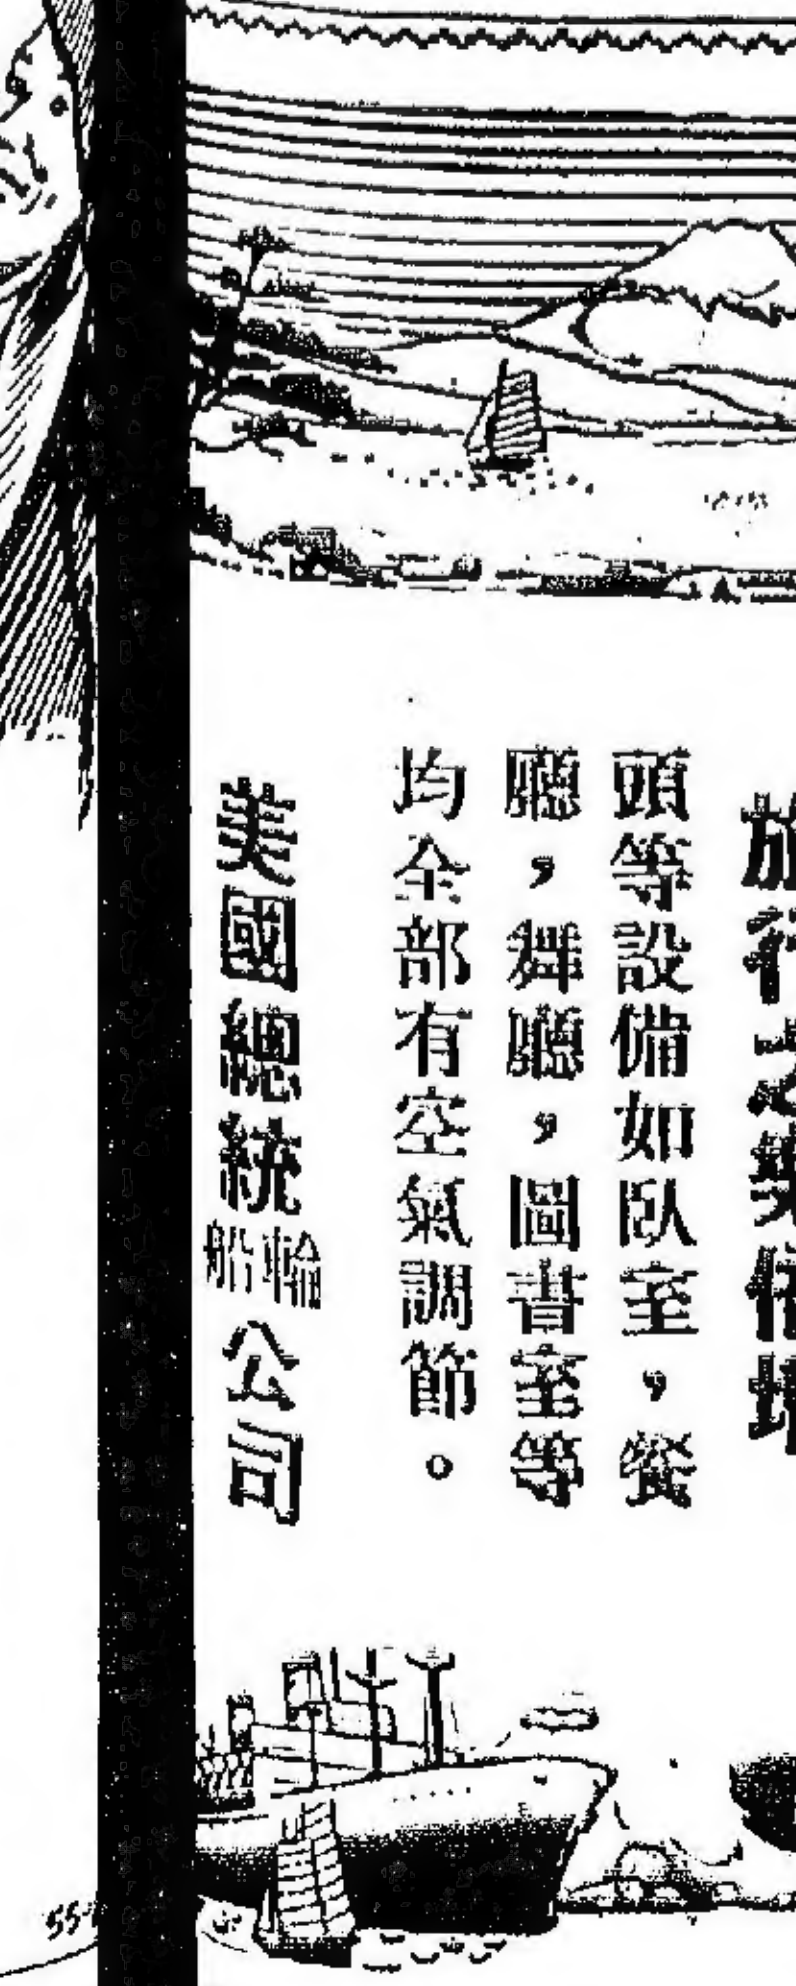 旅行之樂倍增
頭等設備如臥室，餐
廳，舞廳，圖書室等
均全部有空氣調節。
美國總統輪船公司